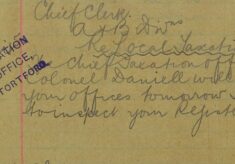 Chief Clerk.
A & B Divns
Re Local Taxatio
Chief Taxation off
Colonel Daniell will
your offices tomorrow
to inspect your Regist
ATION
OFFICE,
TORTFORD